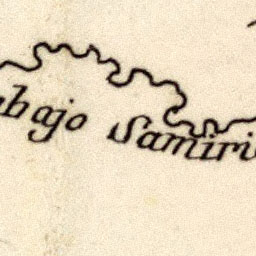 bajo Samiri